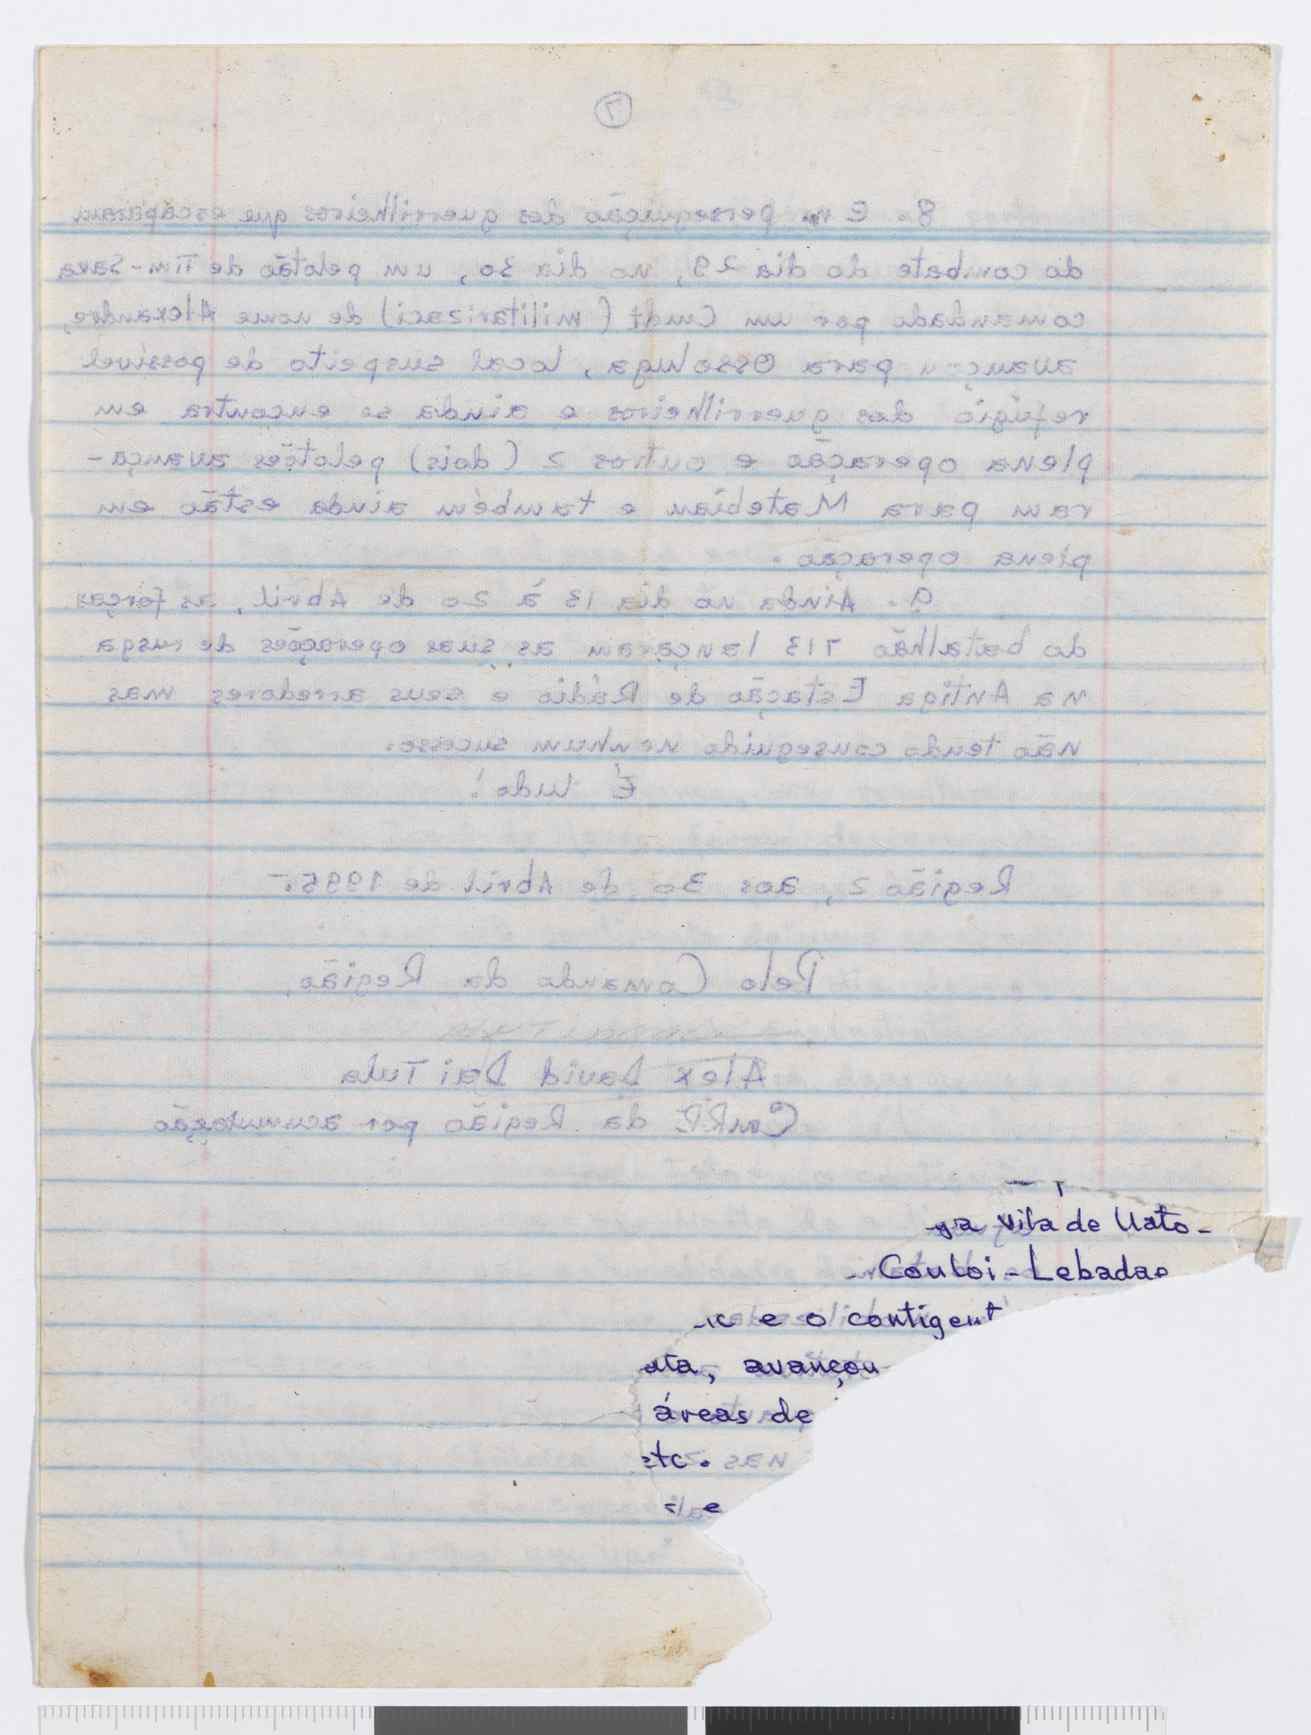 7
8. Em perseguição dos guerrilheiros que escaparam
do combate do dia 29, no dia 30, um pelotão de Tim-Sara
comandado por um Cmdt (militarizaci) de nome Alexandre,
avançou para Ossoluga, local suspeito de possível
refúgio dos guerrilheiros e ainda se encontra em
plena operação e outros 2 (dois) pelotões avança-
ram para Matebian e também ainda estão em
plena operação.
9. Ainda no dia 13 à 20 de Abril, as forças
do batalhão 713 lançaram as suas operações de rusga
na Antiga Estação de Rádio e seus arredores mas
não tendo conseguido nenhum sucesso.
É tudo!
Região 2, aos 30 de Abril de 1995.-
Pelo Comando da Região,
Alex David Dai Tula
da Região por acumulação
vila de Uato-
Couloi-Lebadao
e o contigent
ata, avançou
áreas de
etc.
e